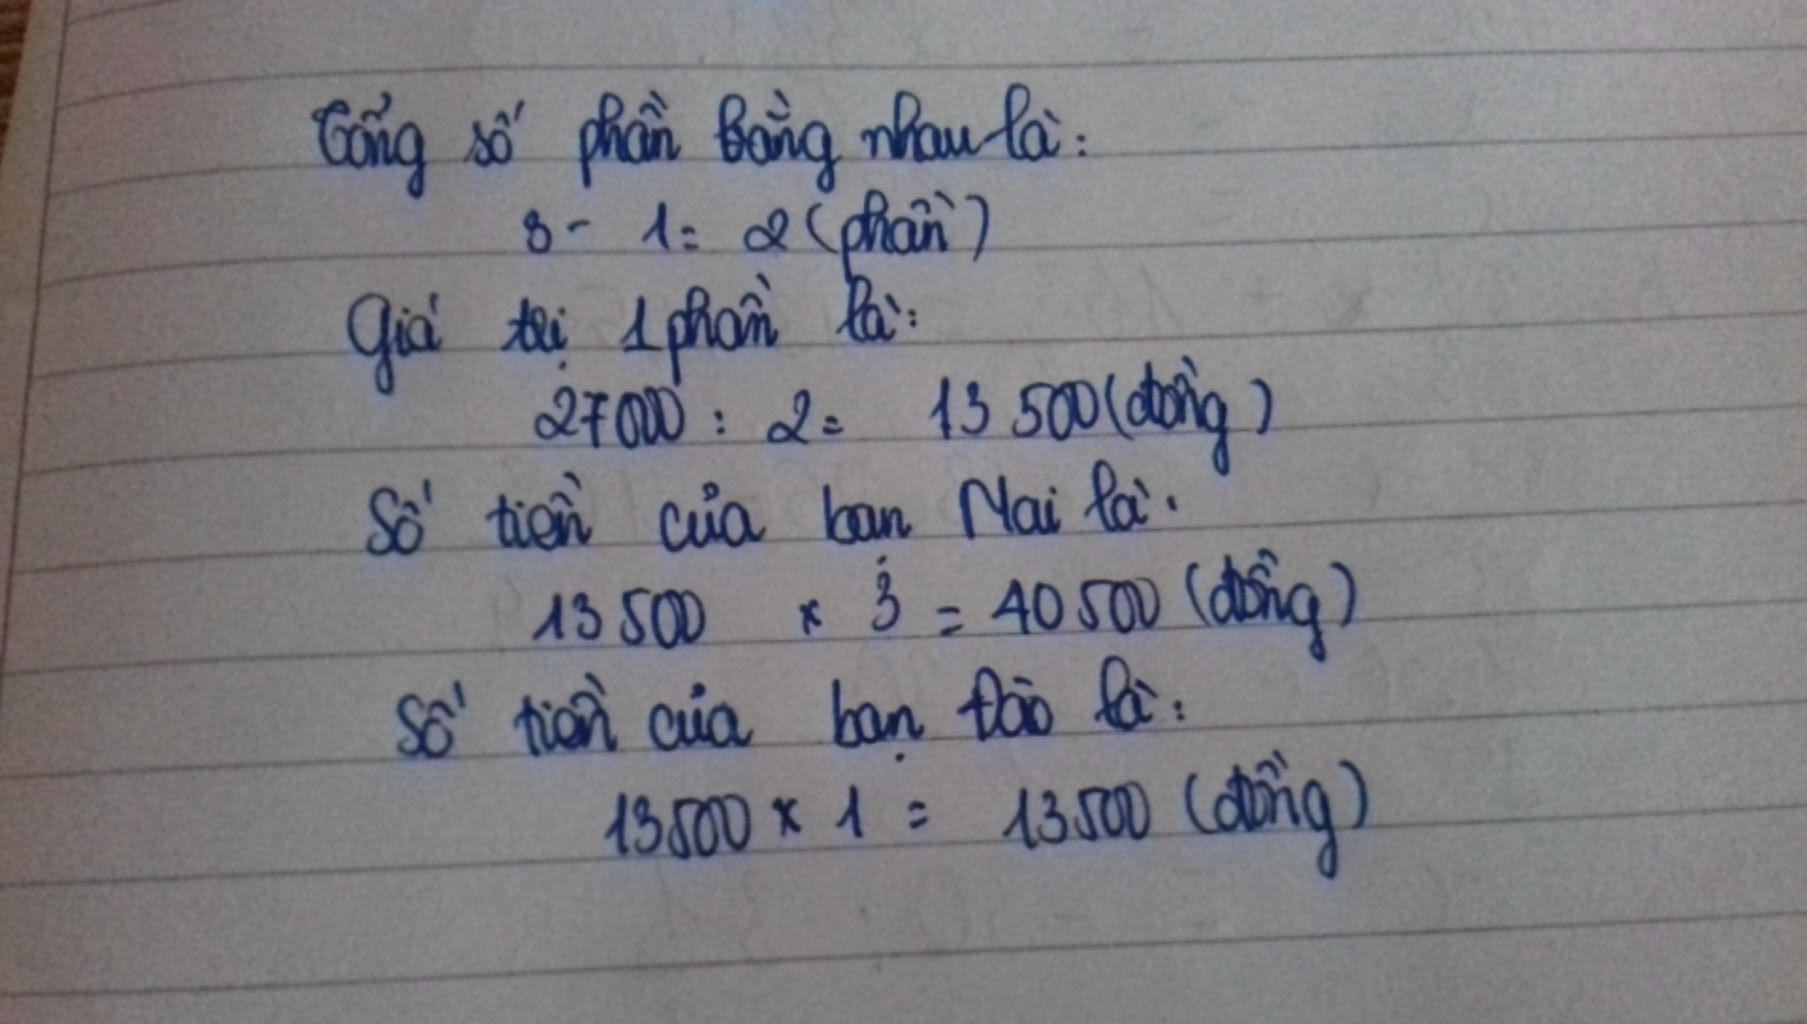 Tổng số phần bằng nhau là:
3 - 1 = 2 (phần)
Giá trị 1 phần là:
27000 : 2 = 13 500 (đồng)
Số tiền của bạn Mai là:
13 500 x 3 = 40 500 (đồng)
Số tiền của bạn Đào là:
13 500 x 1 = 13 500 (đồng)